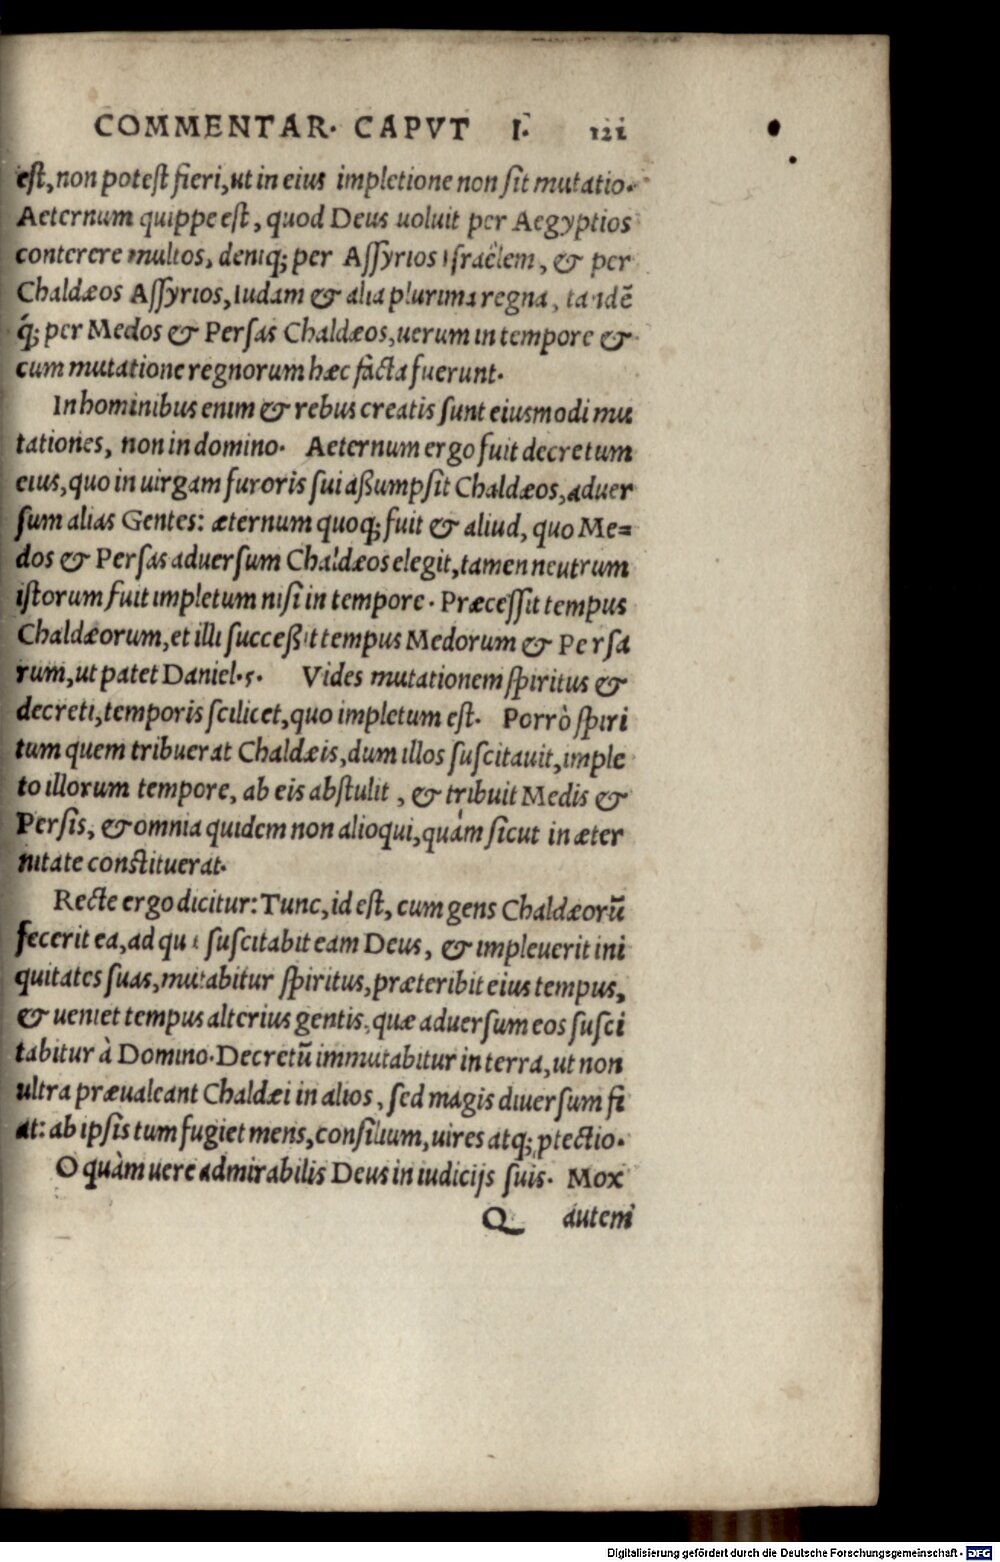 COMMENTAR. CAPVT I. 121
est, non potest fieri, ut in eius impletione non sit mutatio.
Aeternum quippe est, quod Deus uoluit per Aegyptios
conterere multos, deniq; per Assyrios Israëlem, & per
Chaldæos Assyrios, Iudam & alia plurima regna, tandē
q́; per Medos & Persas Chaldæos, uerum in tempore &
cum mutatione regnorum hæc facta fuerunt.
In hominibus enim & rebus creatis sunt eiusmodi mu
tationes, non in domino. Aeternum ergo fuit decretum
eius, quo in uirgam furoris sui aßumpsit Chaldæos, aduer
sum alias Gentes: æternum quoq; fuit & aliud, quo Me=
dos & Persas aduersum Chaldæos elegit, tamen neutrum
istorum fuit impletum nisi in tempore. Præcessit tempus
Chaldæorum, et illi succeßit tempus Medorum & Persa
rum, ut patet Daniel. 5. Vides mutationem spiritus &
decreti, temporis scilicet, quo impletum est. Porrò spiri
tum quem tribuerat Chaldæis, dum illos suscitauit, imple
to illorum tempore, ab eis abstulit, & tribuit Medis &
Persis, & omnia quidem non alioqui, quàm sicut in æter
nitate constituerat.
Recte ergo dicitur: Tunc, id est, cum gens Chaldæorū
fecerit ea, ad qu suscitabit eam Deus, & impleuerit ini
quitates suas, mutabitur spiritus, præteribit eius tempus,
& ueniet tempus alterius gentis, quæ aduersum eos susci
tabitur à Domino. Decretū immutabitur in terra, ut non
ultra præualeant Chaldæi in alios, sed magis diuersum fi
at: ab ipsis tum fugiet mens, consilium, uires atq; ptectio.
O quàm uere admirabilis Deus in iudicijs suis. Mox
Q autem
Digitalisierung gefördert durch die Deutsche Forschungsgemeinschaft - DFG